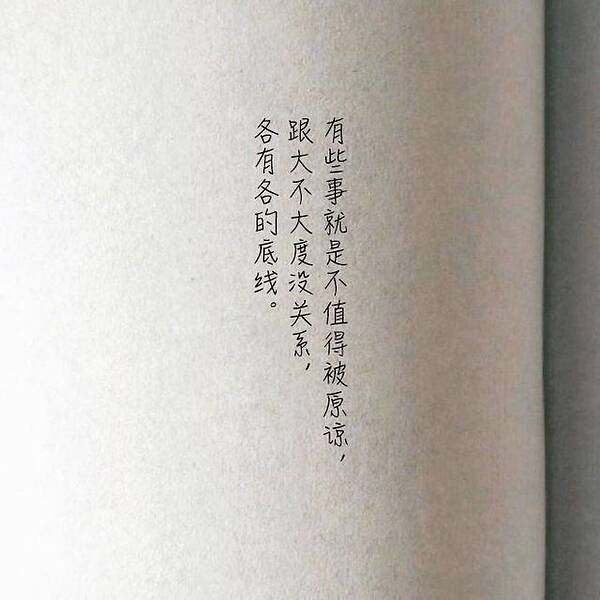 有些事就是不值得被原谅，
跟大不大度没关系，
各有各的底线。